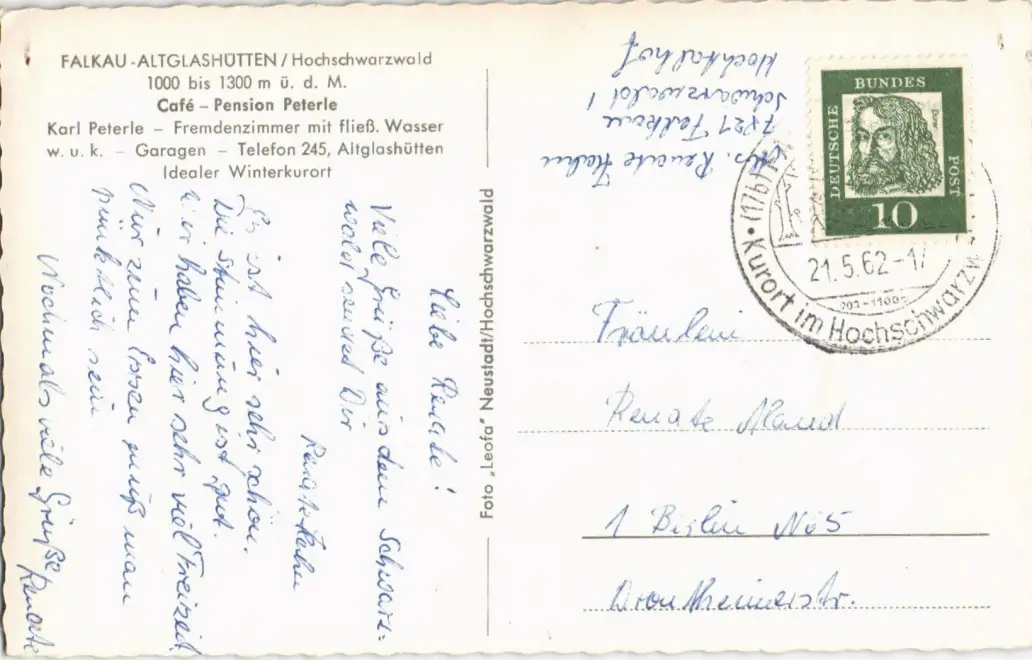 FALKAU-ALTGLASHÜTTEN / Hochschwarzwald
1000 bis 1300 m ü. d. M.
Café – Pension Peterle
Karl Peterle – Fremdenzimmer mit fließ. Wasser
w. u. k. – Garagen – Telefon 245, Altglashütten
Idealer Winterkurort
Liebe Renate!
Viele Grüße aus dem Schwarz-
wald sendet Dir
Renate Hahn
Es ist hier sehr schön.
Die Stimmung ist gut.
Wir haben hier sehr viel Freizeit
Nur zum Essen muß man
pünktlich sein
Nochmals viele Grüße Renate
Foto „Leofa" Neustadt/Hochschwarzwald
Abs. Renate Hahn
7821 Falkau
Schwarzwald 1
Hochfalhof
DEUTSCHE
BUNDES
POST
10
(17b)
21.5.62-1
Kurort im Hochschwarzw
Fräulein
Renate
1 Berlin N65
Drontheimerstr.